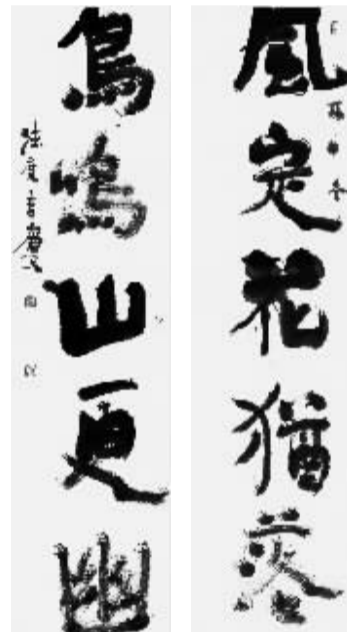 風定花猶落
鳥鳴山更幽